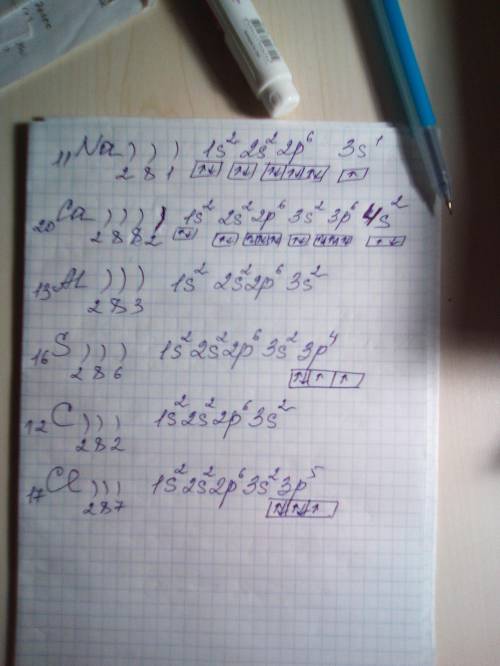 11Na ) ) ) 1s² 2s² 2p⁶ 3s¹
2 8 1 ↑↓ ↑↓ ↑↓ ↑↓ ↑↓ ↑
20Ca ) ) ) ) 1s² 2s² 2p⁶ 3s² 3p⁶ 4s²
2 8 8 2 ↑↓ ↑↓ ↑↓ ↑↓ ↑↓ ↑↓ ↑↓ ↑↓ ↑↓ ↑↓
13Al ) ) ) 1s² 2s² 2p⁶ 3s²
2 8 3
16S ) ) ) 1s² 2s² 2p⁶ 3s² 3p⁴
2 8 6 ↑↓ ↑ ↑
12C ) ) ) 1s² 2s² 2p⁶ 3s²
2 8 2
17Cl ) ) ) 1s² 2s² 2p⁶ 3s² 3p⁵
2 8 7 ↑↓ ↑↓ ↑